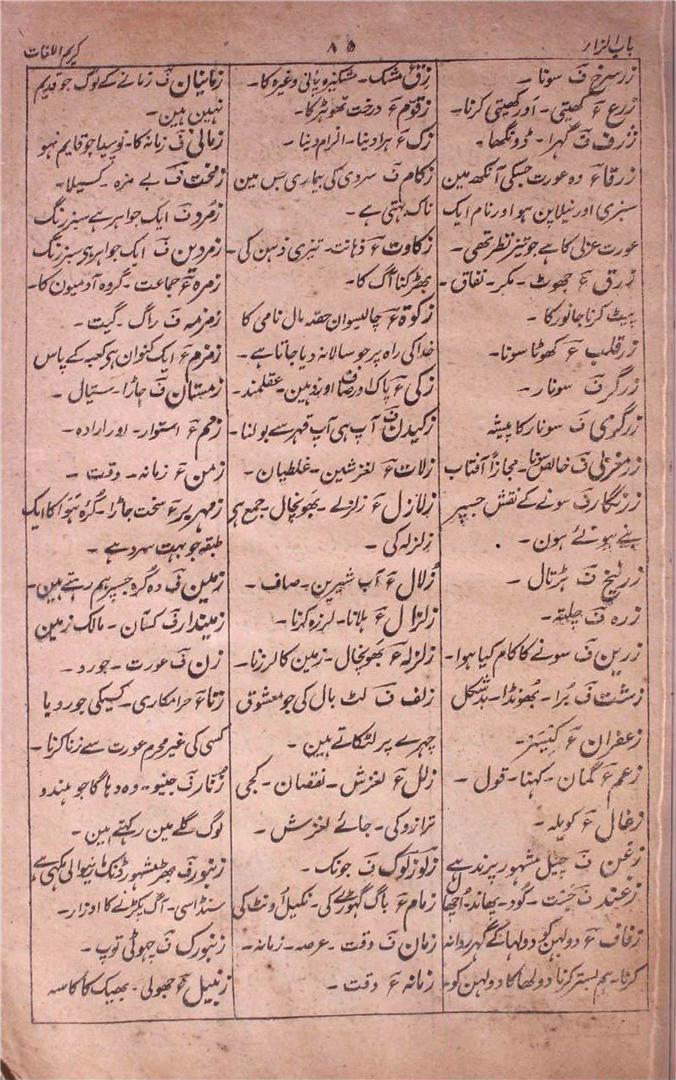 باب الزار
۸۵
کریم اللغات
زر سرخ ف سونا ۔
زرع ع کھیتی ۔ اور کھیتی کرنا ۔
ژرف ف گہرا ۔ ڈونگھا ۔
زرقاء ع وہ عورت جسکی آنکھ مین
سبزی اور نیلاپن ہو اور نام ایک
عورت عزلی کا ہے جو تیز نظر تھی ۔
زرق ع جھوٹ ۔ مکر ۔ نفاق ۔
پیٹ کرنا جانور کا ۔
زر قلب ع کھوٹا سونا ۔
زرگر ف سونار ۔
زرگری ف سونار کا پیشہ
زر مغربی ف خالص سونا ۔ مجازاً آفتاب
زرنگار ف سونے کے نقش جسپر
بنے ہوئے ہون ۔
زرنیخ ف ہڑتال ۔
زرہ ف چلتہ ۔
زرین ف سونے کا کام کیا ہوا ۔
زشت ف برا ۔ بھونڈا ۔ بدشکل
زعفران ع کیسر ۔
زعم ع گمان ۔ کہنا ۔ قول ۔
زغال ع کویلہ ۔
زغن ف چیل مشہور پرند ہے
زغند ف جست ۔ کود ۔ پھاند ۔ اچھال
زفاف ع دولہن کو دولہا کے گھر روانہ
کرنا ۔ ہم بستر کرنا دولھا کا دولہن کو ۔
زق ع مشک ۔ مشکیزہ پانی وغیرہ کا ۔
زقوم ع درخت تھوہڑ کا ۔
زک ع ہرا دینا ۔ الزام دینا ۔
زکام ف سردی کی بیماری جس مین
ناک بہتی ہے ۔
زکاوت ع ذہانت ۔ تیزی ذہن کی ۔
بھڑکنا آگ کا ۔
زکوٰۃ ع چالیسوان حصہ مال نامی کا
خدا کی راہ پر جو سالانہ دیا جاتا ہے ۔
زکی ع پاک اور صاف اور ذہین ۔ عقلمند ۔
زکیدن ف آپ ہی آپ قہر سے بولنا ۔
زلات ع لغزشین ۔ غلطیان ۔
زلازل ع زلزلے ۔ بھونچال ۔ جمع ہی
زلزلہ کی ۔
زلال ع آب شیرین ۔ صاف ۔
زلزال ع ہلانا ۔ لرزہ کرنا ۔
زلزلہ ع بھونچال ۔ زمین کا لرزنا ۔
زلف ف لٹ بال کی جو معشوق
چہرے پر لٹکاتے ہین ۔
زلل ع لغزش ۔ نقصان ۔ کجی
ترازو کی ۔ جائے لغزش ۔
زلو زلوک ف جونک ۔
زمام ع باگ گھوڑے کی ۔ نکیل اونٹ کی
زمان ف وقت ۔ عرصہ ۔ زمانہ ۔
زمانہ ع وقت ۔
زمانیان ف زمانے کے لوگ جو قدیم
نہین ہین ۔
زمانی ف زمانہ کا ۔ نوپیدا جو قایم نہو
زمخت ف بے مزہ ۔ کسیلا ۔
زمرد ف ایک جواہر ہے سبز رنگ
زمردین ف ایک جواہر ہی سبز رنگ
زمرہ ع جماعت ۔ گروہ آدمیون کا ۔
زمزمہ ف راگ ۔ گیت ۔
زمزم ع ایک کنوان ہی کعبہ کے پاس
زمستان ف جاڑا ۔ سیتال ۔
زمم ع استوار ۔ اور ارادہ ۔
زمن ع زمانہ ۔ وقت ۔
زمہریر ع سخت جاڑا ۔ کرہ ہوا کا ایک
طبقہ جو بہت سرد ہے ۔
زمین ف وہ کرہ جسپر ہم رہتے ہین ۔
زمیندار ف کسان ۔ مالک زمین
زن ف عورت ۔ جورو ۔
زنا ع حرامکاری ۔ کسیکی جورو یا
کسی کی غیر محرم عورت سے زنا کرنا ۔
زنار ف جنیو ۔ وہ دہاگا جو ہندو
لوگ گلے مین رکھتے ہین ۔
زنبور ف بھڑ مشہور ڈنک مارنیوالی مکھی ہے
سنڈاسی ۔ آگ پکڑنے کا اوزار ۔
زنبورک ف چھوٹی توپ ۔
زنبیل ع جھولی ۔ بھیک کا کاسہ